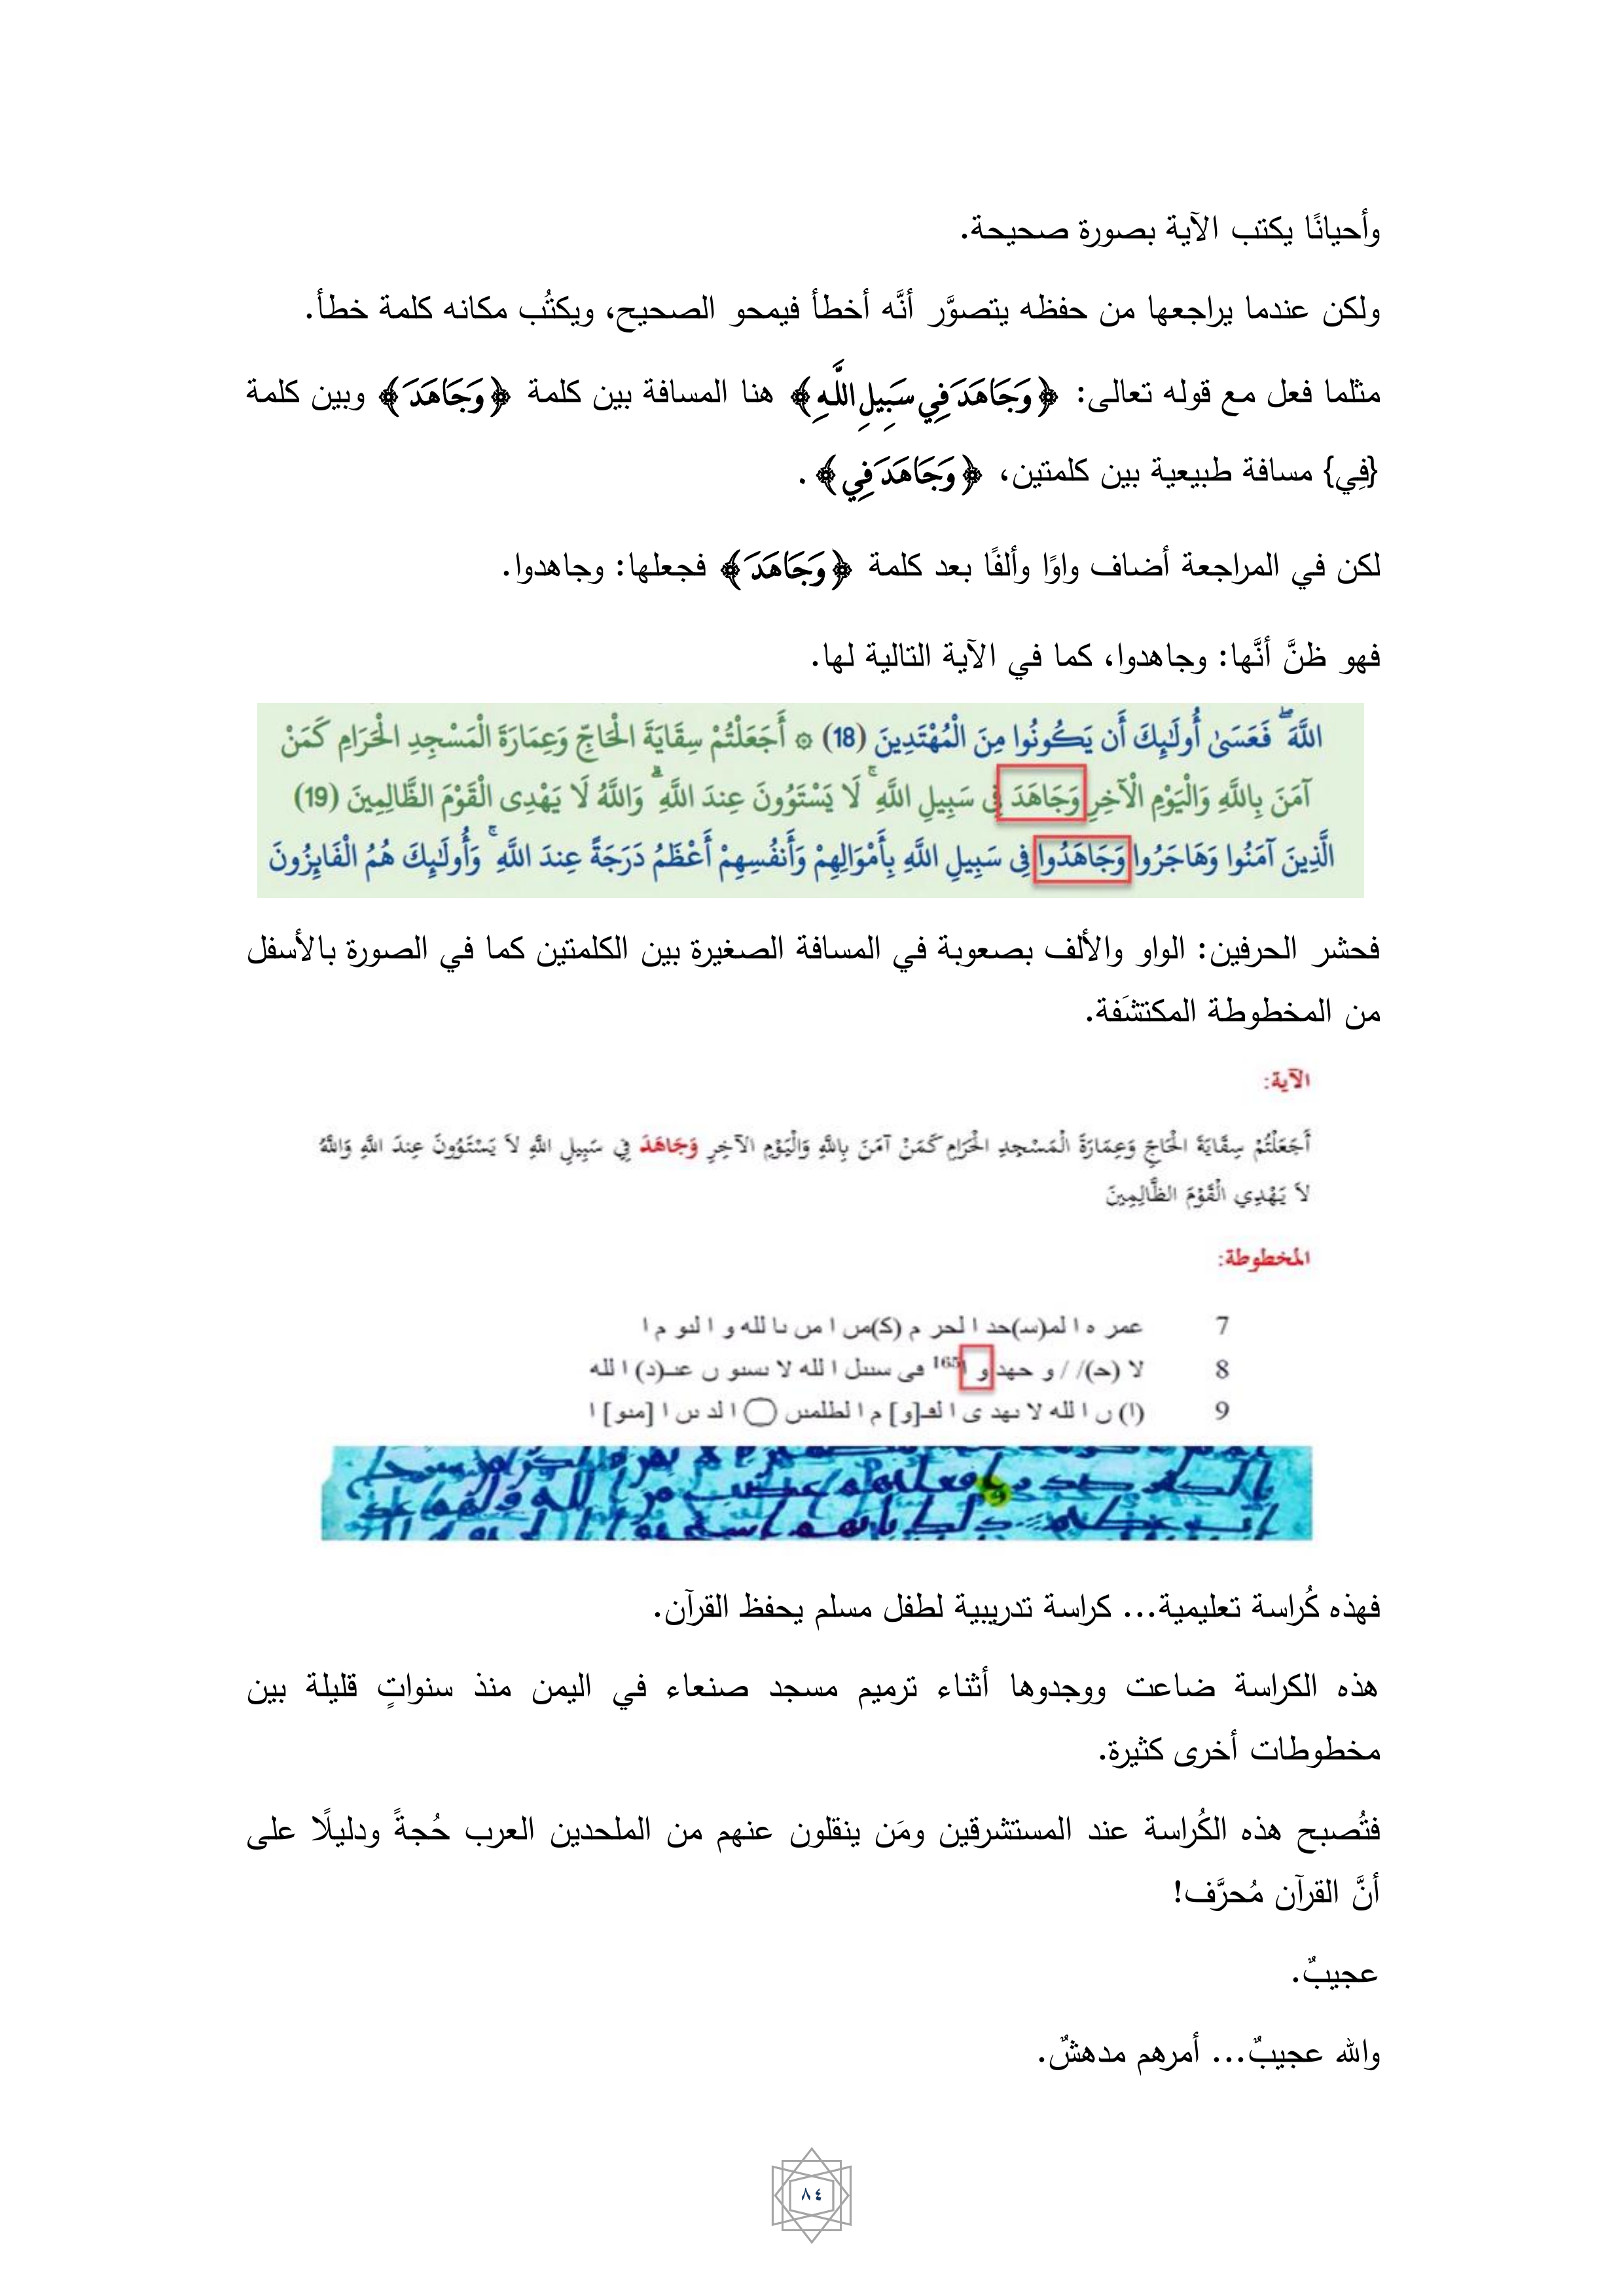 وأحيانًا يكتب الآية بصورة صحيحة.
ولكن عندما يراجعها من حفظه يتصوَّر أنَّه أخطأ فيمحو الصحيح، ويكتُب مكانه كلمة خطأ.
مثلما فعل مع قوله تعالى: ﴿وَجَاهَدَ فِي سَبِيلِ اللَّهِ﴾ هنا المسافة بين كلمة ﴿وَجَاهَدَ﴾ وبين كلمة
{فِي} مسافة طبيعية بين كلمتين، ﴿وَجَاهَدَ فِي﴾ .
لكن في المراجعة أضاف واوًا وألفًا بعد كلمة ﴿وَجَاهَدَ﴾ فجعلها: وجاهدوا.
فهو ظنَّ أنَّها: وجاهدوا، كما في الآية التالية لها.
اللَّهَ ۖ فَعَسَىٰ أُولَٰئِكَ أَن يَكُونُوا مِنَ الْمُهْتَدِينَ (18) ۞ أَجَعَلْتُمْ سِقَايَةَ الْحَاجِّ وَعِمَارَةَ الْمَسْجِدِ الْحَرَامِ كَمَنْ
آمَنَ بِاللَّهِ وَالْيَوْمِ الْآخِرِ وَجَاهَدَ فِى سَبِيلِ اللَّهِ ۚ لَا يَسْتَوُونَ عِندَ اللَّهِ ۗ وَاللَّهُ لَا يَهْدِى الْقَوْمَ الظَّالِمِينَ (19)
الَّذِينَ آمَنُوا وَهَاجَرُوا وَجَاهَدُوا فِى سَبِيلِ اللَّهِ بِأَمْوَالِهِمْ وَأَنفُسِهِمْ أَعْظَمُ دَرَجَةً عِندَ اللَّهِ ۚ وَأُولَٰئِكَ هُمُ الْفَايِزُونَ
فحشر الحرفين: الواو والألف بصعوبة في المسافة الصغيرة بين الكلمتين كما في الصورة بالأسفل
من المخطوطة المكتشَفة.
الآية:
أَجَعَلْتُمْ سِقَايَةَ الْحَاجِّ وَعِمَارَةَ الْمَسْجِدِ الْحَرَامِ كَمَنْ آمَنَ بِاللَّهِ وَالْيَوْمِ الآخِرِ وَجَاهَدَ فِي سَبِيلِ اللَّهِ لاَ يَسْتَوُونَ عِندَ اللَّهِ وَاللَّهُ
لاَ يَهْدِي الْقَوْمَ الظَّالِمِينَ
المخطوطة:
7 عمر ه ا لم(ـسـ)حد ا لحر م (كـ)مں ا مں ٮا لله و ا لٮو م ا
8 لا (حـ)/ / و حهد و ا 165 فى سٮٮل ا لله لا ٮسٮو ں عٮـ(د) ا لله
9 (ا) ں ا لله لا ٮهد ى ا لڡـ[و] م ا لطلمٮں ا لد ٮں ا [مٮو] ا
فهذه كُراسة تعليمية... كراسة تدريبية لطفل مسلم يحفظ القرآن.
هذه الكراسة ضاعت ووجدوها أثناء ترميم مسجد صنعاء في اليمن منذ سنواتٍ قليلة بين
مخطوطات أخرى كثيرة.
فتُصبح هذه الكُراسة عند المستشرقين ومَن ينقلون عنهم من الملحدين العرب حُجةً ودليلًا على
أنَّ القرآن مُحرَّف!
عجيبٌ.
والله عجيبٌ... أمرهم مدهشٌ.
٨٤